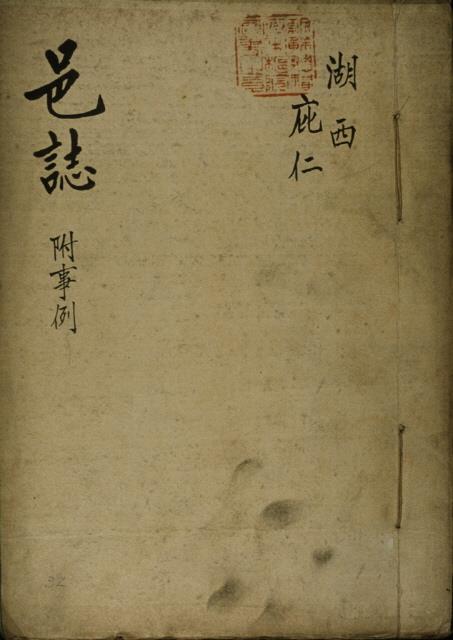 湖西
庇仁
邑誌
附事例
32